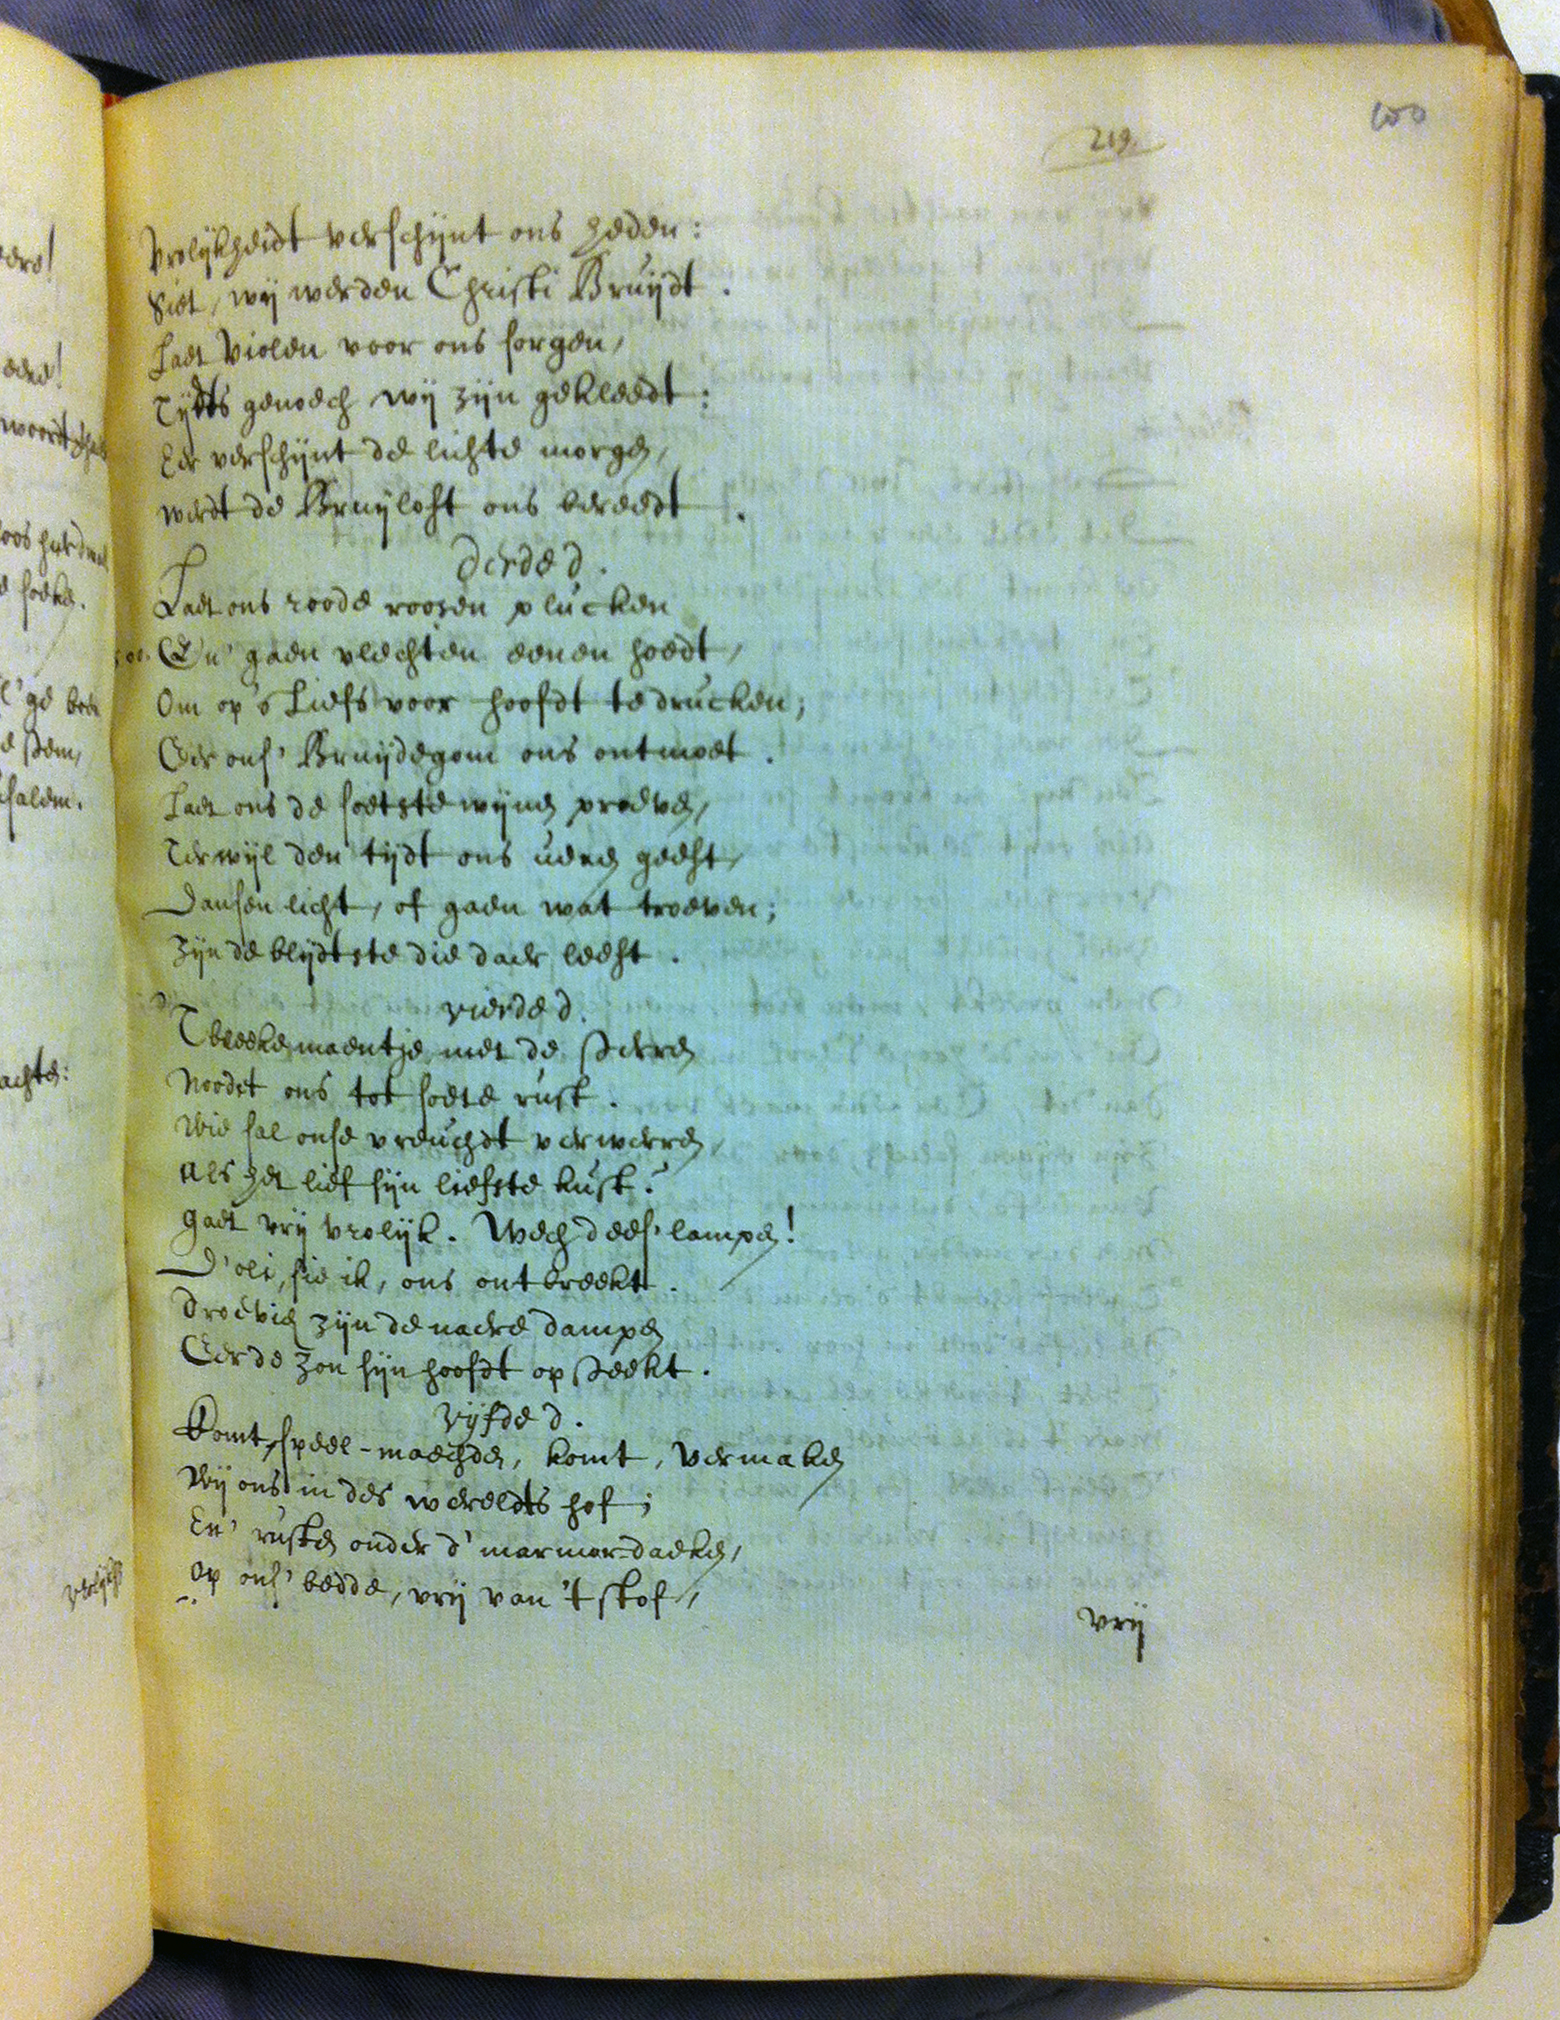 100
219.
Vrolijkheidt verschijnt ons heden:
Siet, wij werden Christi Bruijdt.
Laet Violen voor ons sorgen,
Tijdts genoech wij zijn gekleedt:
Eer verschijnt de lichte morgen,
werdt de Bruijloft ons bereedt.
derde d.
Laet ons roode roosen plucken
En' gaen vlechten eenen hoedt,
Om op 's Liefs voor hoofdt te drucken;
Eer ons' Bruijdegom ons ontmoet.
Laet ons de soetste wijnen proeven,
Terwijl den tijdt ons uren geeft,
Dansen licht, of gaen wat troeven;
Zijn de blijdtste die daer leeft.
vierde d.
T bleeke maentje met de sterren
Noodet ons tot soete rust.
Wie sal onse vreuchdt verwerren
Als het lief sijn liefste kust?
gaet vrij vrolijk. Wech dees' lampen!
D'oli, sie ik, ons ontbreekt.
Droevich zijn de nacre dampen
Eer de Zon sijn hooft opsteekt.
vijfde d.
Komt, speel-maechden, komt, vermaken
Wij ons in des wereldts hof;
En' rusten onder d' marmor-daeken,
Op ons' bedde, vrij van 't stof,
vrij